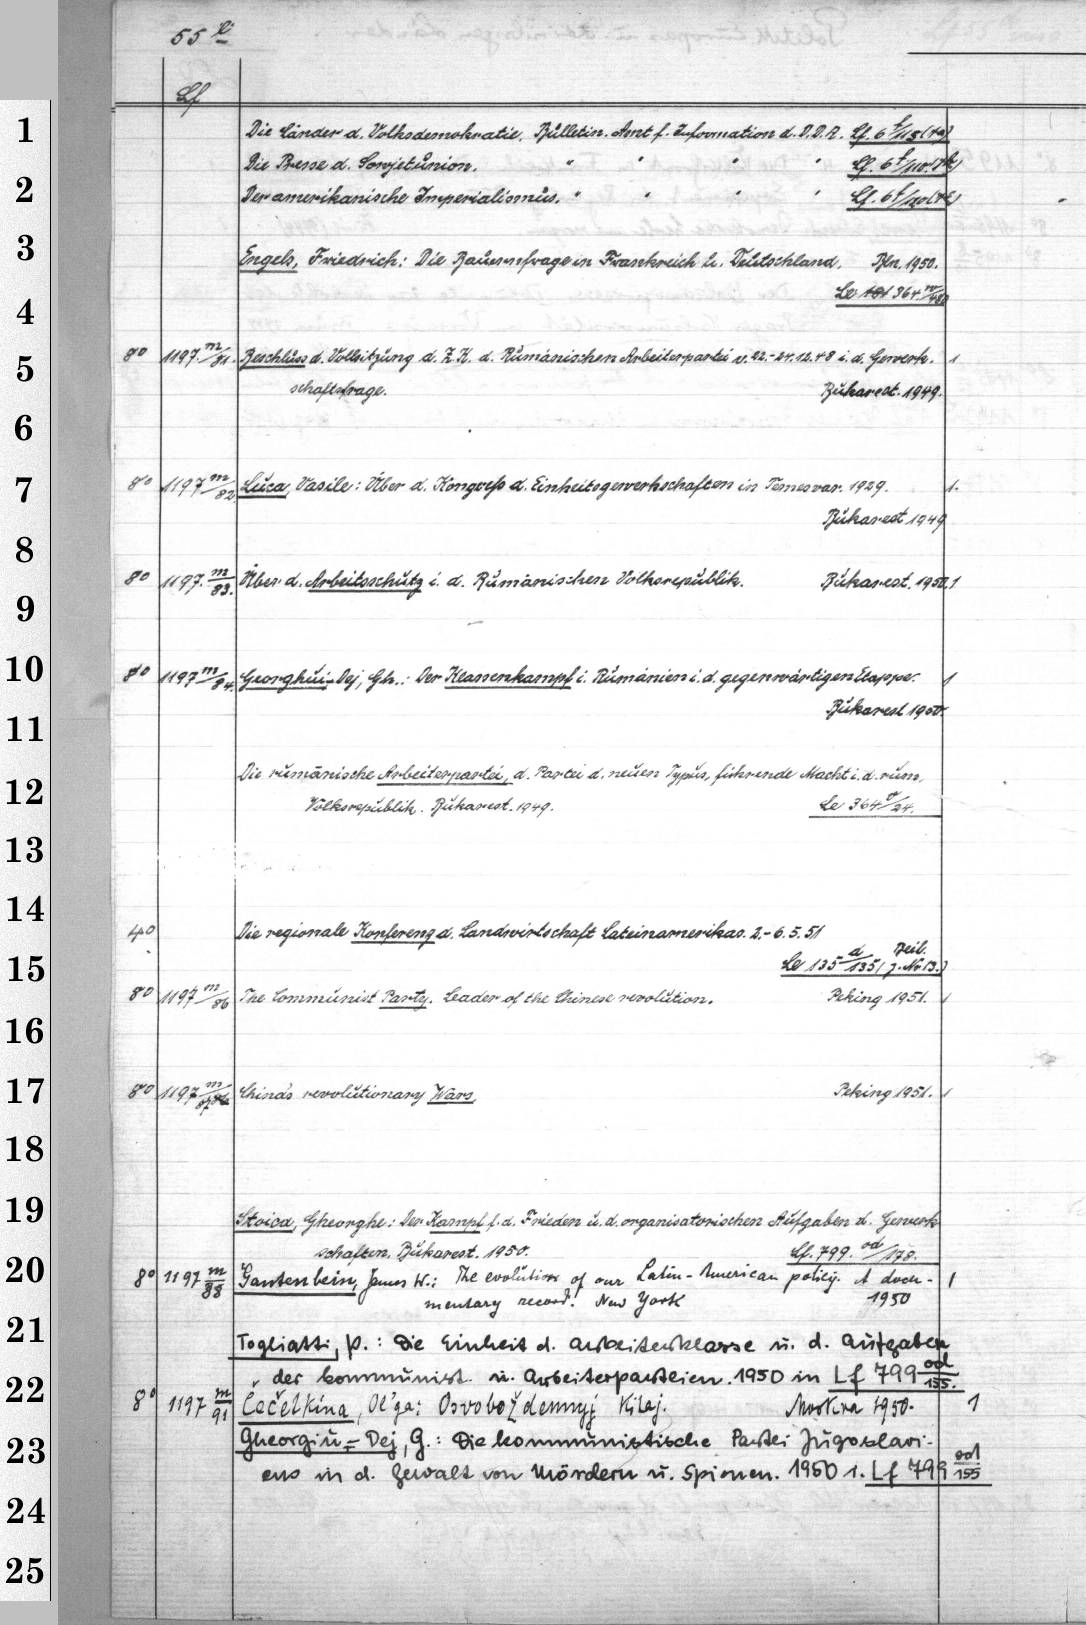 55
Lf
1
Die Länder d. Volksdemokratie. Bulletin. Amt f. Information d. D.D.R. Lf. 6
2
Die Presse d. Sowjetunion. " " " " Lf. 6
Der amerikanische Imperialismus. " " " " Lf. 6
3
Engels, Friedrich: Die Bauernfrage in Frankreich u. Deutschland. Bln. 1950.
4
Le 364
5
8° 1197 m/81. Beschluss d. Vollsitzung d. Z.K. d. Rumänischen Arbeiterpartei v. 22.-24.12.48 i. d. Gewerk- 1
schaftsfrage. Bukarest. 1949.
6
7
8° 1197 m/82 Luca, Vasile: Über d. Kongreß d. Einheitsgewerkschaften in Temesvar. 1929. 1.
Bukarest 1949
8
8° 1197. m/83. Über d. Arbeitsschutz i. d. Rumänischen Volksrepublik. Bukarest. 1950. 1
9
10
8° 1197 m/84. Georghui-Dej, Gh.: Der Klassenkampf i. Rumänien i. d. gegenwärtigen Etappe. 1
Bukarest 1950.
11
12
Die rumänische Arbeiterpartei, d. Partei d. neuen Typus, führende Macht i. d. rum.
Volksrepublik. Bukarest. 1949. Le 364 /24.
13
14
4° Die regionale Konferenz d. Landwirtschaft Lateinamerikas. 2.-6.5.51
15
Le 135 d/135 ( Beil. z. No 13.)
8° 1197 m/86 The Communist Party. Leader of the Chinese revolution. Peking 1951. 1
16
17
8° 1197 m/87 China's revolutionary Wars. Peking 1951. 1
18
19
Stoica, Gheorghe: Der Kampf f. d. Frieden u. d. organisatorischen Aufgaben d. Gewerk
schaften. Bukarest. 1950. Lf. 799. od/178.
20
8° 1197 m/88 Gantenbein, James W.: The evolution of our Latin-American policy. A docu- 1
mentary record. New York 1950
21
Togliatti, P.: Die Einheit d. Arbeiterklasse u. d. Aufgaben
22
der kommunist. u. Arbeiterparteien. 1950 in Lf 799 od/155.
8° 1197 m/91 Čečëtkina, Ol'ga: Osvoboždennyj Kitaj. Moskva 1950. 1
23
Gheorgiu-Dej, G.: Die kommunistische Partei Jugoslavi-
ens in d. Gewalt von Mördern u. Spionen. 1950 i. Lf 799 od/155
24
25